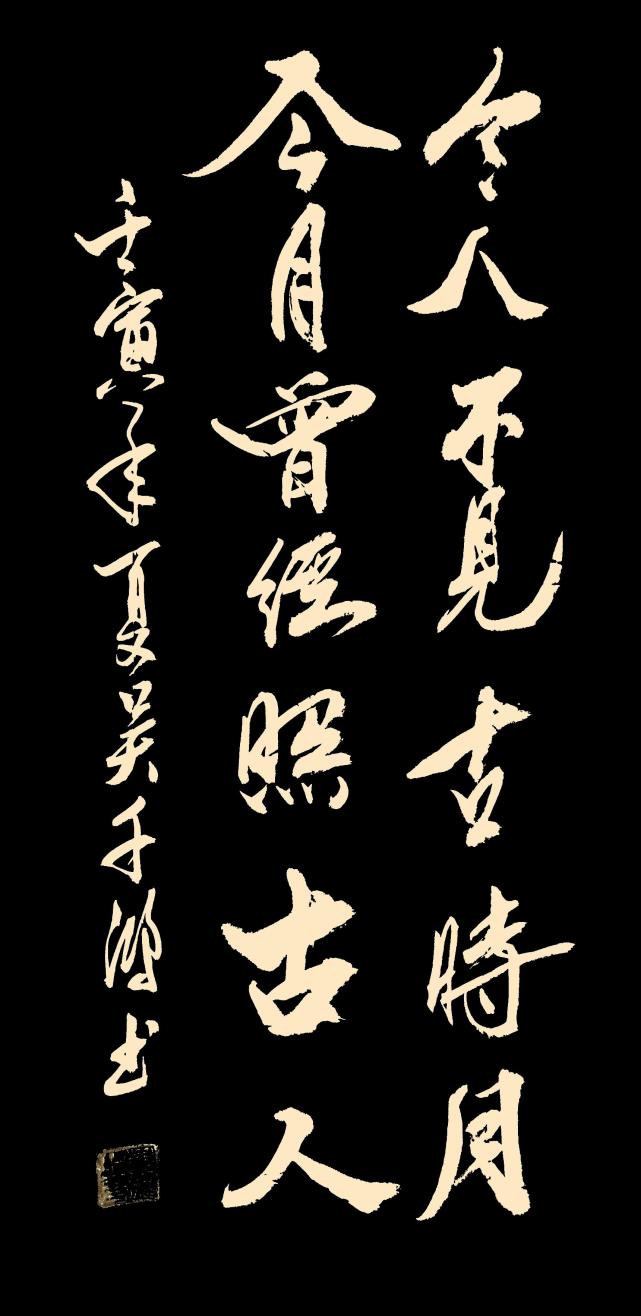 今人不見古時月
今月曾經照古人
壬寅年夏吴千鴻书